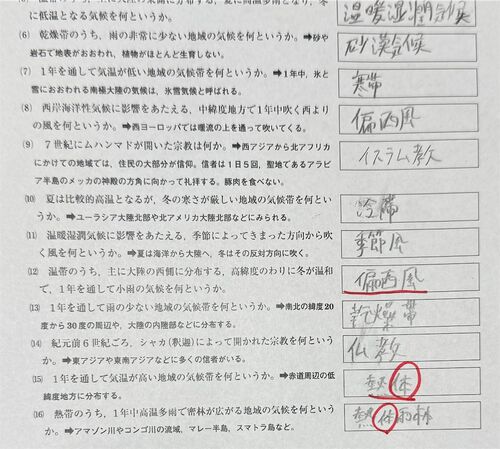 に低温となる気候を何というか。
温暖湿潤気候
(6) 乾燥帯のうち、雨の非常に少ない地域の気候を何というか。➡砂や
岩石で地表がおおわれ、植物がほとんど生育しない。
砂漠気候
(7) 1年を通して気温が低い地域の気候帯を何というか。➡1年中、氷と
雪におおわれる南極大陸の気候は、氷雪気候と呼ばれる。
寒帯
(8) 西岸海洋性気候に影響をあたえる、中緯度地方で1年中吹く西より
の風を何というか。➡西ヨーロッパでは暖流の上を通って吹いてくる。
偏西風
(9) 7世紀にムハンマドが開いた宗教は何か。➡西アジアから北アフリカ
にかけての地域では、住民の大部分が信仰。信者は1日5回、聖地であるアラビ
ア半島のメッカの神殿の方角に向かって礼拝する。豚肉を食べない。
イスラム教
(10) 夏は比較的高温となるが、冬の寒さが厳しい地域の気候帯を何とい
うか。➡ユーラシア大陸北部や北アメリカ大陸北部などにみられる。
冷帯
(11) 温暖湿潤気候に影響をあたえる、季節によってきまった方向から吹
く風を何というか。➡夏は海洋から大陸へ、冬はその反対方向に吹く。
季節風
(12) 温帯のうち、主に大陸の西側に分布する、高緯度のわりに冬が温和
で、1年を通して小雨の気候を何というか。
偏西風
(13) 1年を通して雨の少ない地域の気候帯を何というか。➡南北の緯度20
度から30度の周辺や、大陸の内陸部などに分布する。
乾燥帯
(14) 紀元前6世紀ごろ、シャカ(釈迦)によって開かれた宗教を何という
か。➡東アジアや東南アジアなどに多くの信者がいる。
仏教
(15) 1年を通して気温が高い地域の気候帯を何というか。➡赤道周辺の低
緯度地方に分布する。
熱体
(16) 熱帯のうち、1年中高温多雨で密林が広がる地域の気候を何という
か。➡アマゾン川やコンゴ川の流域、マレー半島、スマトラ島など。
熱体雨林